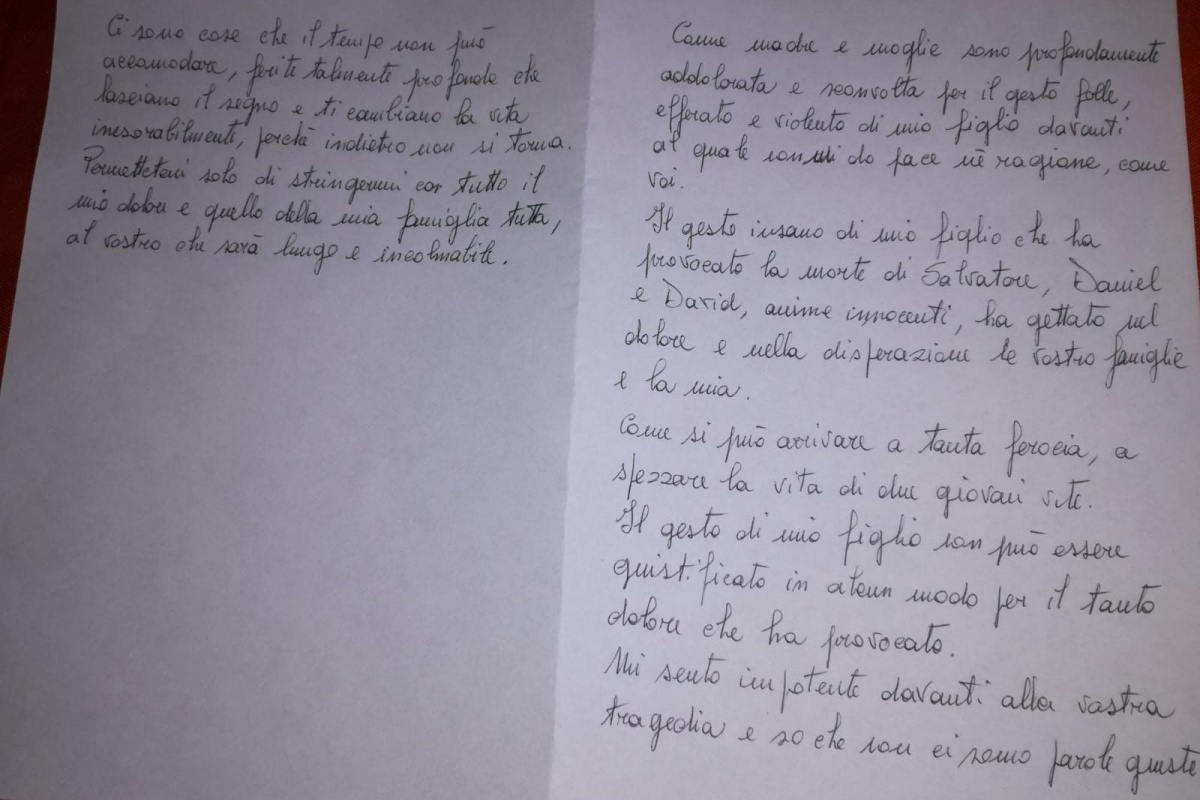 Ci sono cose che il tempo non può
accomodare, ferite talmente profonde che
lasciano il segno e ti cambiano la vita
inesorabilmente, perchè indietro non si torna.
Permettetemi solo di stringermi con tutto il
mio dolore e quello della mia famiglia tutta,
al vostro che sarà lungo e incolmabile.
Come madre e moglie sono profondamente
addolorata e sconvolta per il gesto folle,
efferato e violento di mio figlio davanti
al quale non mi do pace nè ragione, come
voi.
Il gesto insano di mio figlio che ha
provocato la morte di Salvatore, Daniel
e David, anime innocenti, ha gettato nel
dolore e nella disperazione le vostre famiglie
e la mia.
Come si può arrivare a tanta ferocia, a
spezzare la vita di due giovani vite.
Il gesto di mio figlio non può essere
giustificato in alcun modo per il tanto
dolore che ha provocato.
Mi sento impotente davanti alla vostra
tragedia e so che non ci sono parole giuste